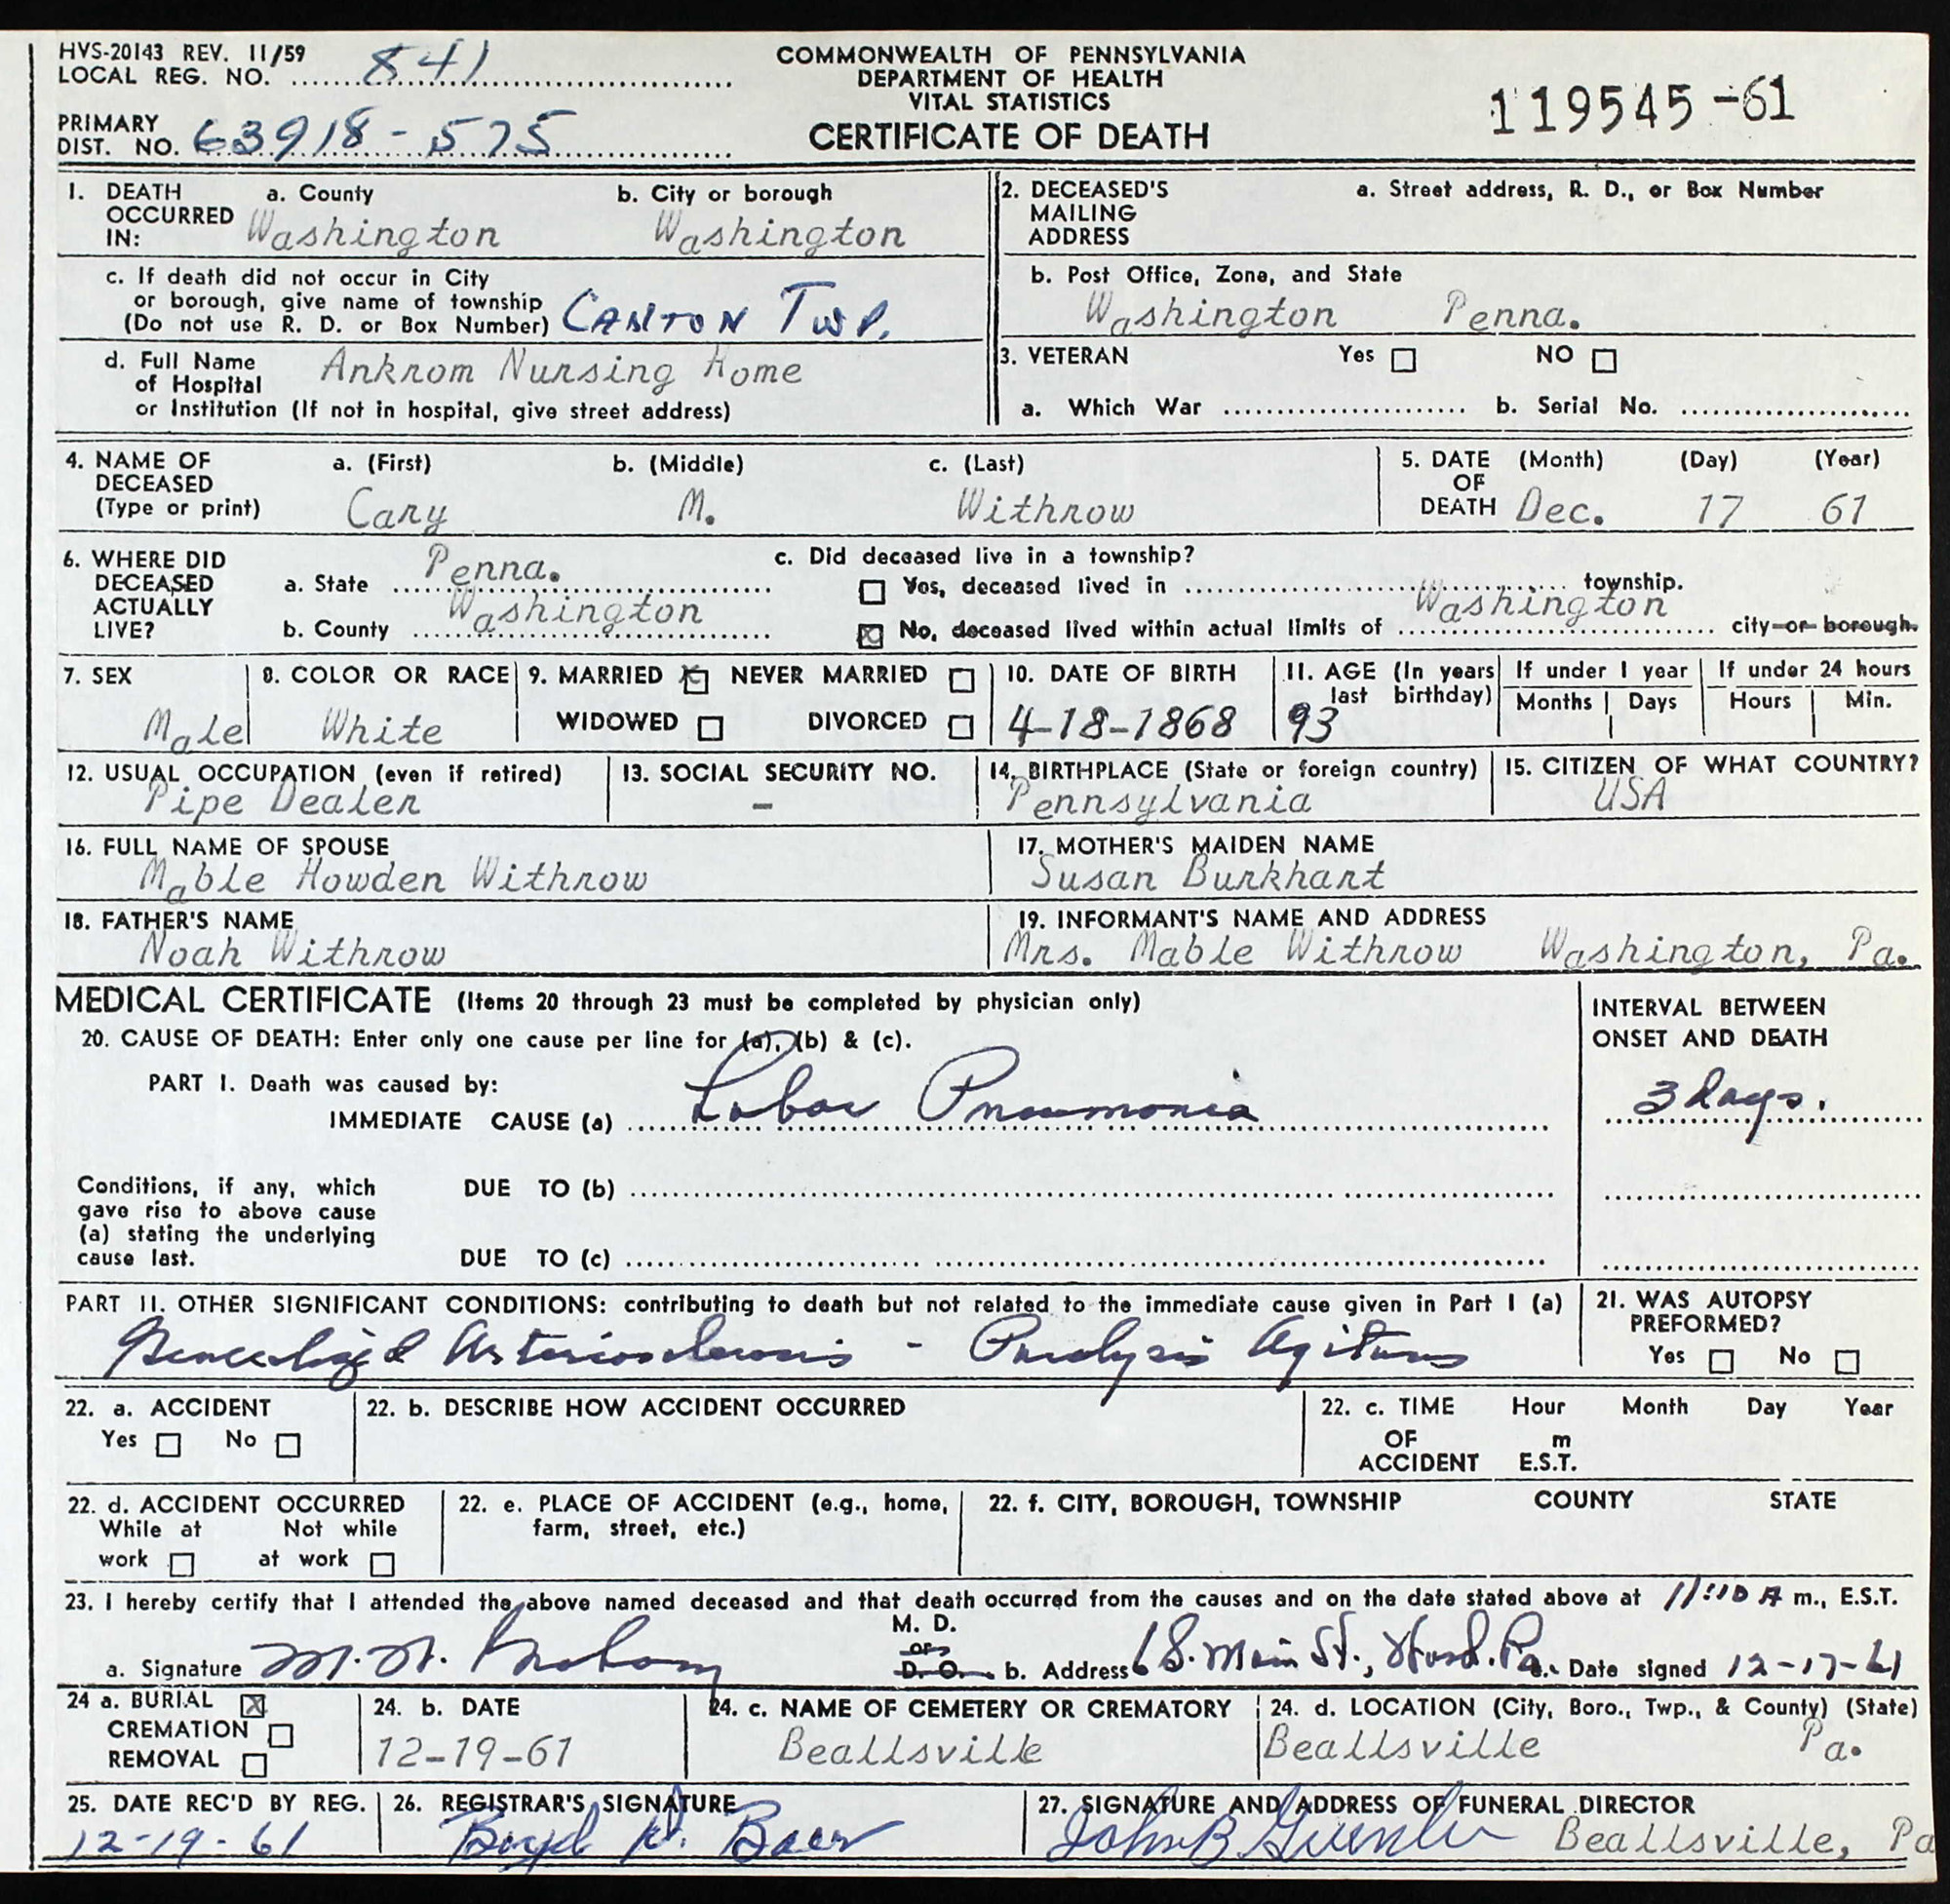 HVS-20143 REV. 11/59
LOCAL REG. NO. 841
PRIMARY
DIST. NO. 63918-575
COMMONWEALTH OF PENNSYLVANIA
DEPARTMENT OF HEALTH
VITAL STATISTICS
CERTIFICATE OF DEATH
119545-61
1. DEATH OCCURRED IN: a. County Washington b. City or borough Washington
c. If death did not occur in City
or borough, give name of township
(Do not use R. D. or Box Number) CANTON TWP.
d. Full Name of Hospital Ankrom Nursing Home
or Institution (If not in hospital, give street address)
2. DECEASED'S MAILING ADDRESS a. Street address, R. D., or Box Number
b. Post Office, Zone, and State
Washington Penna.
3. VETERAN Yes NO
a. Which War b. Serial No.
4. NAME OF DECEASED (Type or print) a. (First) b. (Middle) c. (Last)
Cary M. Withrow
5. DATE OF DEATH (Month) (Day) (Year)
Dec. 17 61
6. WHERE DID DECEASED ACTUALLY LIVE? a. State Penna.
b. County Washington
c. Did deceased live in a township?
Yes, deceased lived in township.
No, deceased lived within actual limits of Washington city or borough.
7. SEX Male
8. COLOR OR RACE White
9. MARRIED NEVER MARRIED
WIDOWED DIVORCED
10. DATE OF BIRTH 4-18-1868
11. AGE (In years last birthday) 93
If under 1 year Months Days
If under 24 hours Hours Min.
12. USUAL OCCUPATION (even if retired)
Pipe Dealer
13. SOCIAL SECURITY NO.
-
14. BIRTHPLACE (State or foreign country)
Pennsylvania
15. CITIZEN OF WHAT COUNTRY?
USA
16. FULL NAME OF SPOUSE
Mable Howden Withrow
17. MOTHER'S MAIDEN NAME
Susan Burkhart
18. FATHER'S NAME
Noah Withrow
19. INFORMANT'S NAME AND ADDRESS
Mrs. Mable Withrow Washington, Pa.
MEDICAL CERTIFICATE (Items 20 through 23 must be completed by physician only)
INTERVAL BETWEEN
ONSET AND DEATH
20. CAUSE OF DEATH: Enter only one cause per line for (a), (b) & (c).
PART I. Death was caused by:
IMMEDIATE CAUSE (a) Lobar Pneumonia 3 days.
Conditions, if any, which
gave rise to above cause
(a) stating the underlying
cause last.
DUE TO (b)
DUE TO (c)
PART II. OTHER SIGNIFICANT CONDITIONS: contributing to death but not related to the immediate cause given in Part I (a)
Generalized Arteriosclerosis - Paralysis Agitans
21. WAS AUTOPSY
PREFORMED?
Yes No
22. a. ACCIDENT
Yes No
22. b. DESCRIBE HOW ACCIDENT OCCURRED
22. c. TIME OF ACCIDENT Hour Month Day Year
m
E.S.T.
22. d. ACCIDENT OCCURRED
While at work Not while at work
22. e. PLACE OF ACCIDENT (e.g., home,
farm, street, etc.)
22. f. CITY, BOROUGH, TOWNSHIP COUNTY STATE
23. I hereby certify that I attended the above named deceased and that death occurred from the causes and on the date stated above at 11:10 A m., E.S.T.
a. Signature M. M. M. D. or D. O. b. Address 6 S. Main St., Pa. Date signed 12-17-61
24 a. BURIAL
CREMATION
REMOVAL
24. b. DATE
12-19-61
24. c. NAME OF CEMETERY OR CREMATORY
Beallsville
24. d. LOCATION (City, Boro., Twp., & County) (State)
Beallsville Pa.
25. DATE REC'D BY REG.
12-19-61
26. REGISTRAR'S SIGNATURE
Boyd Baer
27. SIGNATURE AND ADDRESS OF FUNERAL DIRECTOR
John B Beallsville, Pa